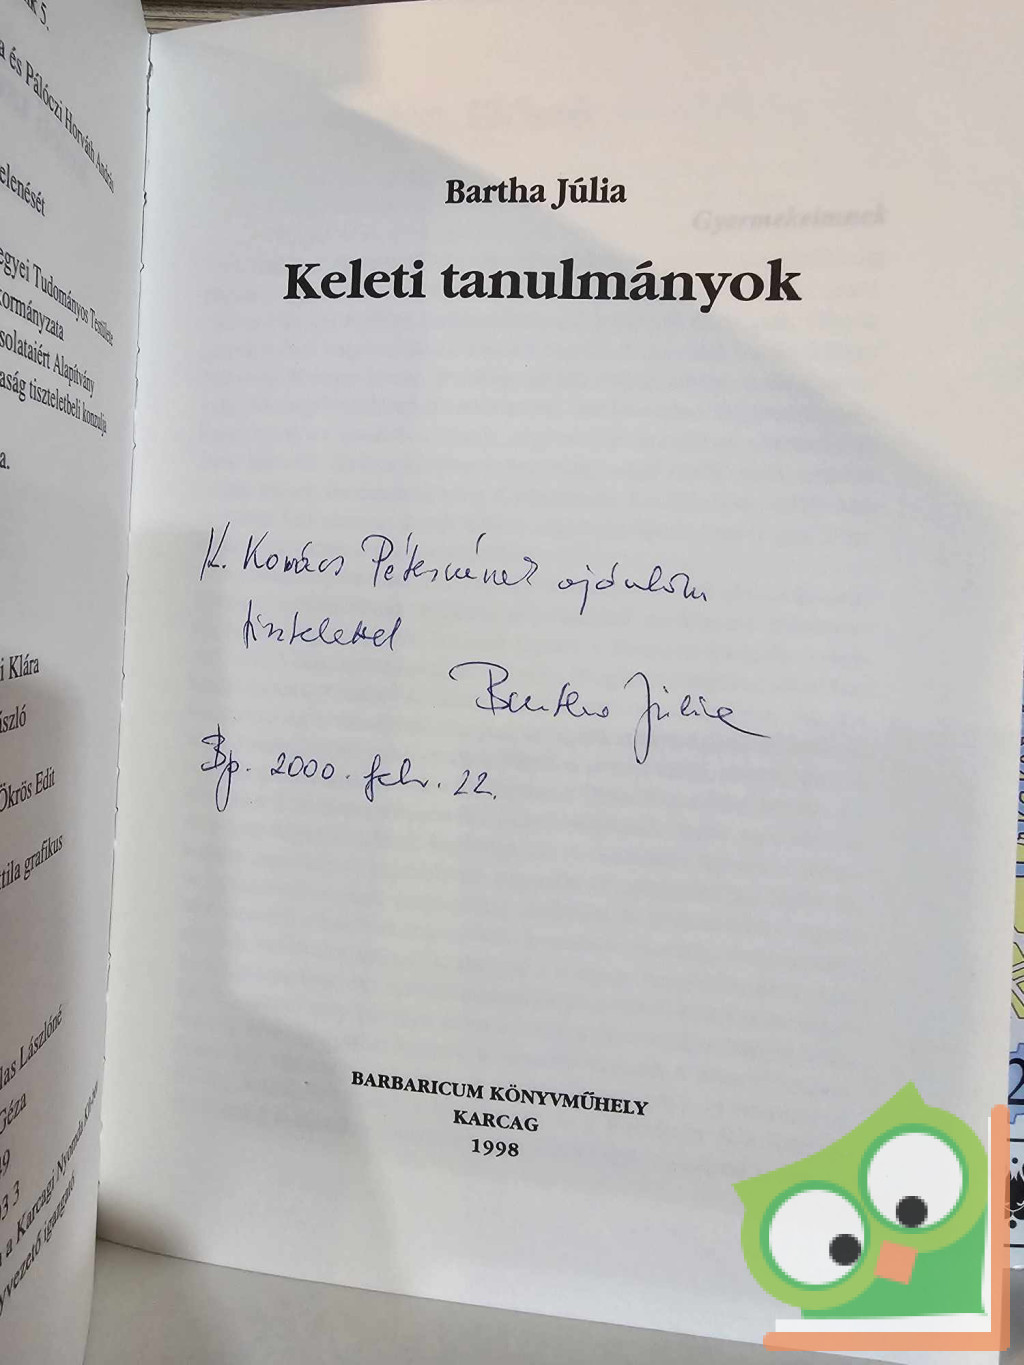 k 5.
a és Pálóczi Horváth András
elenését
egyei Tudományos Testülete
kormányzata
solataiért Alapítvány
aság tiszteletbeli konzulja
a.
i Klára
ászló
Ökrös Edit
ttila grafikus
las Lászlóné
Géza
a Karcagi Nyomda Kft-ben
yvezető igazgató
Bartha Júlia
Keleti tanulmányok
Gyermekeimnek
K. Kovács Péternének ajánlom
tisztelettel
Bartha Júlia
Bp. 2000. febr. 22.
BARBARICUM KÖNYVMŰHELY
KARCAG
1998